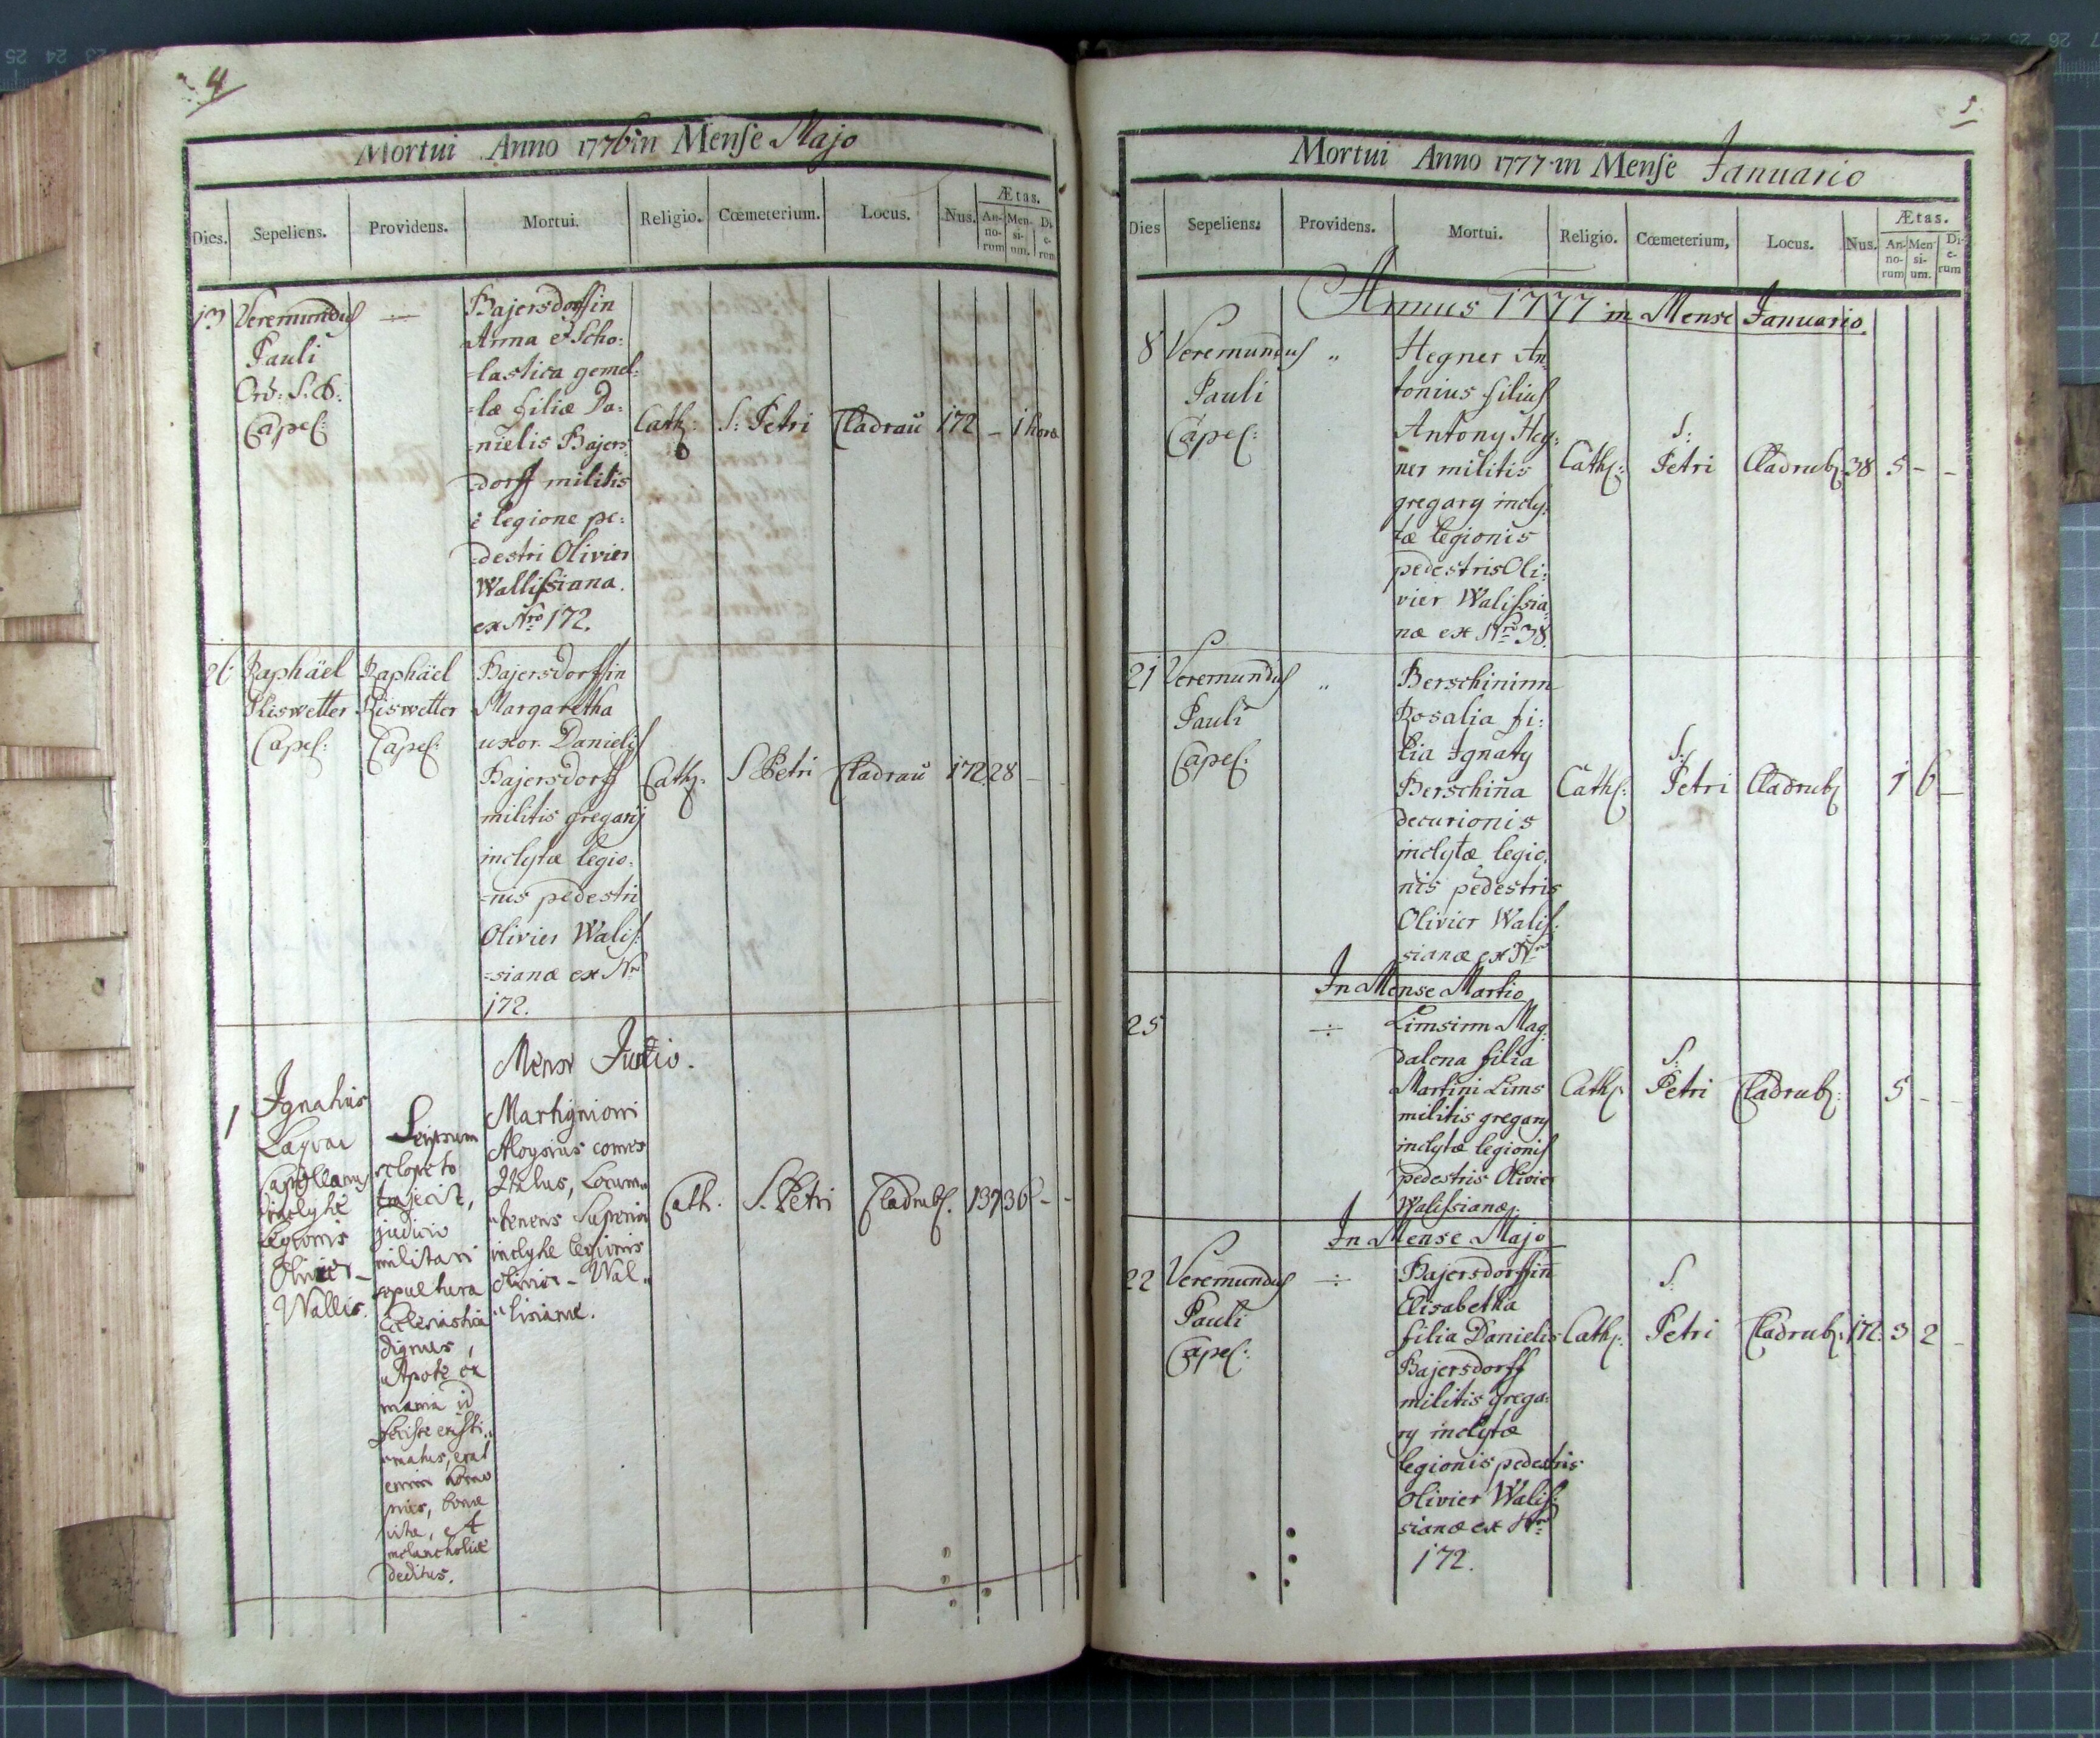 4
Mortui Anno 1776 in Mense Majo
Dies. Sepeliens. Providens. Mortui. Religio. Cœmeterium. Locus. Nus. Ætas.
An-no-rum Men-si-um. Di-e-rum
13 Veremundus
Pauli
Ord: S. B:
Capel:
Bajersdorffin
Anna et Scho:
=lastica gemel:
=læ filiæ Da:
=nielis Bajers:
=dorff militis
è legione pe:
=destri Olivier
Wallissiana.
ex Nro 172.
Cath: S: Petri Cladrau 172 – 1 hora
26 Raphäel
Kiswetter
Capel:
Raphäel
Kiswetter
Capel:
Bajersdorffin
Margaretha
uxor Danielis
Bajersdorff
militis gregarij
inclytæ legio:
=nis pedestri
Olivier Walis:
=sianæ ex Nro
172.
Cath: S. Petri Cladrau 172. 28 –
Mense Julio.
1 Ignatius
Capellanus
inclytæ
Legionis
Olivier –
Wallis.
Seipsum
sclopeto
trajecit,
judicio
militari
sepultura
Ecclesiastica
dignus,
utpote ex
mania id
fecisse existi„
„matus, erat
enim homo
pius, bonæ
vitæ, et
melancholiæ
deditus.
Martignioni
Aloysius comes
Italus, Locum„
„tenens Superior
inclytæ legionis
Olivier – Wal„
„lisianæ.
Cath. S. Petri Cladrub. 137 36 – –
5
Mortui Anno 1777 in Mense Januario
Dies Sepeliens. Providens. Mortui. Religio. Cœmeterium, Locus. Nus. Ætas.
An-no-rum Men-si-um. Di-e-rum
Annus 1777 in Mense Januario.
8 Veremundus „
Pauli
Capel:
Hegner An
tonius filius
Antony Heg:
ner militis
gregary incly:
tæ legionis
pedestris Oli:
vier Walissia
næ ex Nro 38.
Cath: S: Petri Cladrub 38 5 – –
21 Veremundus „
Pauli
Capel:
Berschininn
Rosalia fi:
lia Ignaty
Berschina
decurionis
inclytæ legio:
nis pedestris
Olivier Walis:
sianæ ex Nro
Cath: S: Petri Cladrub 1 6 –
In Mense Martio
25 ÷
Limsinn Mag:
dalena filia
Martini Lims
militis gregary
inclytæ legionis
pedestris Olivier
Walissianæ.
Cath: S: Petri Cladrub: 5 – –
In Mense Majo
22 Veremundus ÷
Pauli
Capel:
Bajersdorffin
Elisabetha
filia Danielis
Bajersdorff
militis grega:
ry inclytæ
legionis pedestris
Olivier Walis:
sianæ ex Nro
172.
Cath: S. Petri Cladrub: 172. 3 2 –